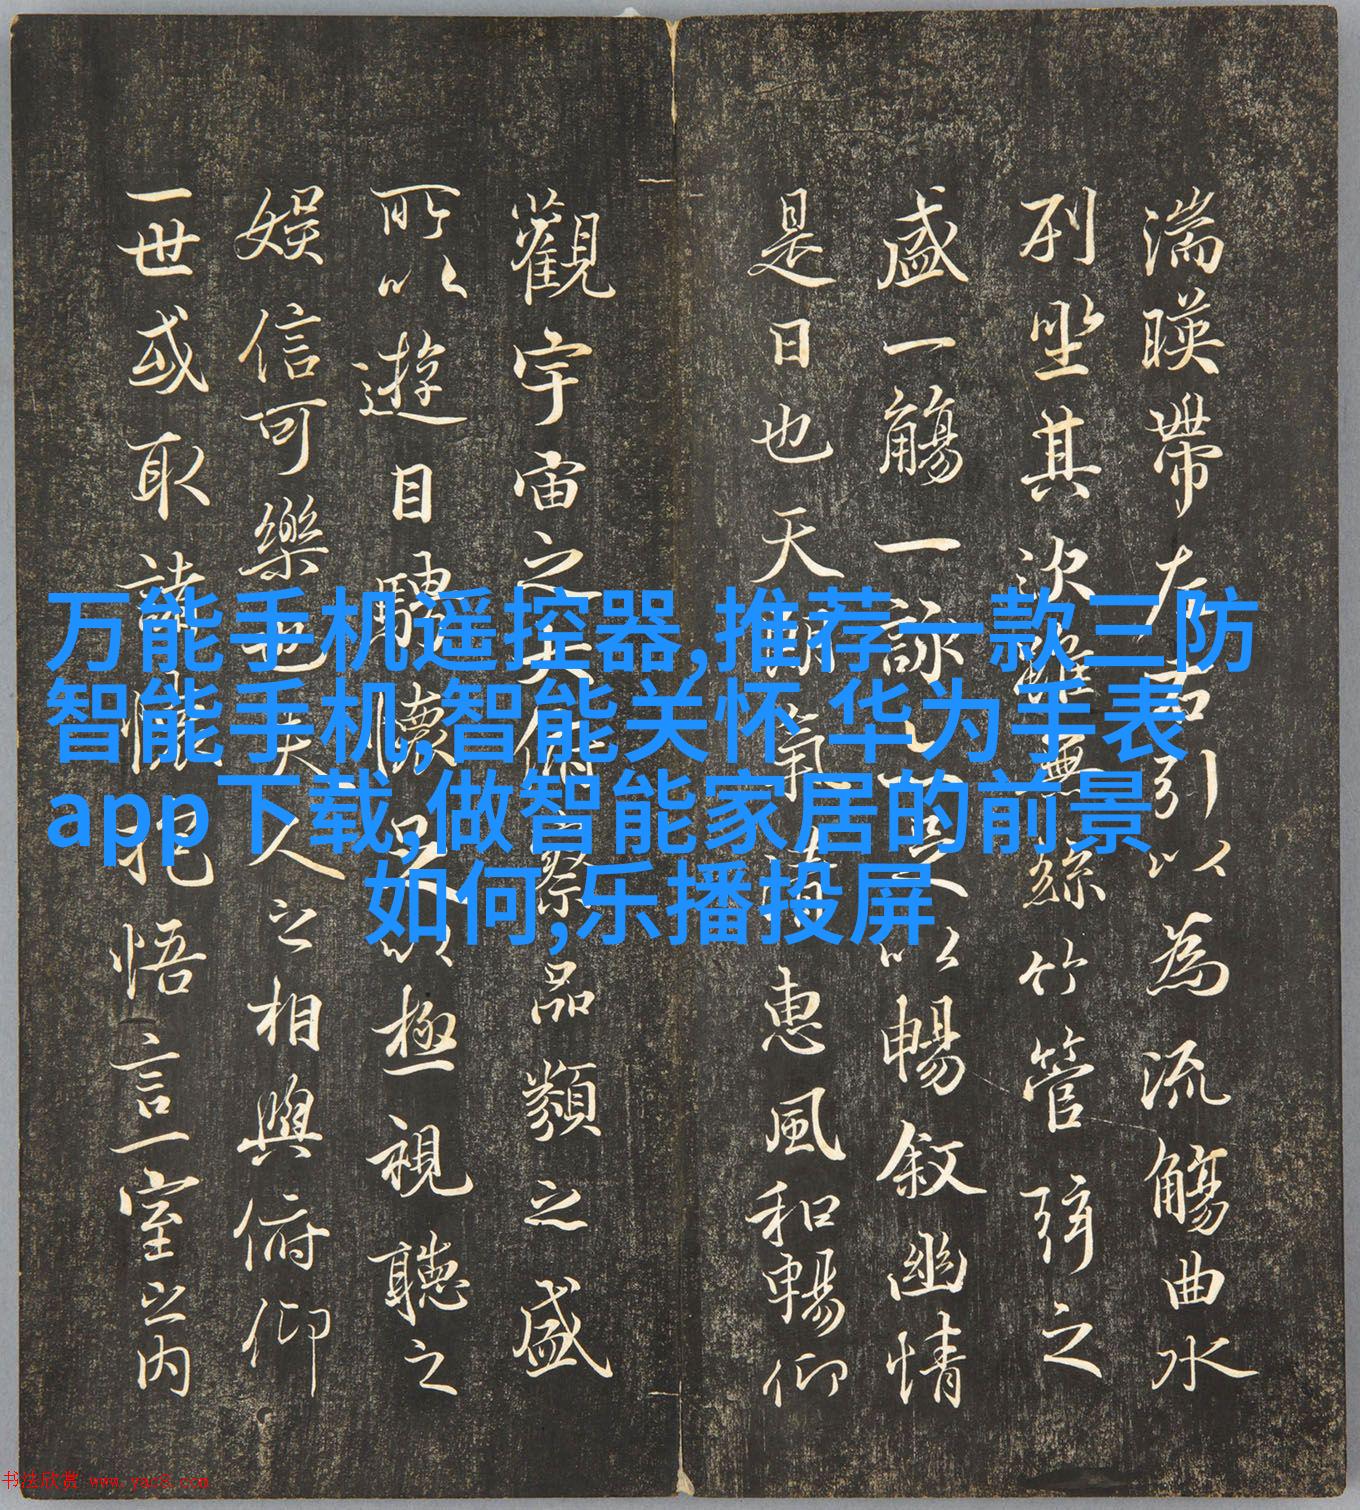 湍暎帶左右引以為流觴曲水
列坐其次雖無絲竹管弦之
盛一觴一詠亦足以暢敘幽情
是日也天朗氣清惠風和暢仰
觀宇宙之大俯察品類之盛
所以遊目騁懷足以極視聽之
娛信可樂也夫人之相與俯仰
一世或取諸懷抱悟言一室之内
万能手机遥控器,推荐一款三防
智能手机,智能关怀 华为手表
app下载,做智能家居的前景
如何,乐播投屏
书法欣赏 www.yac8.com